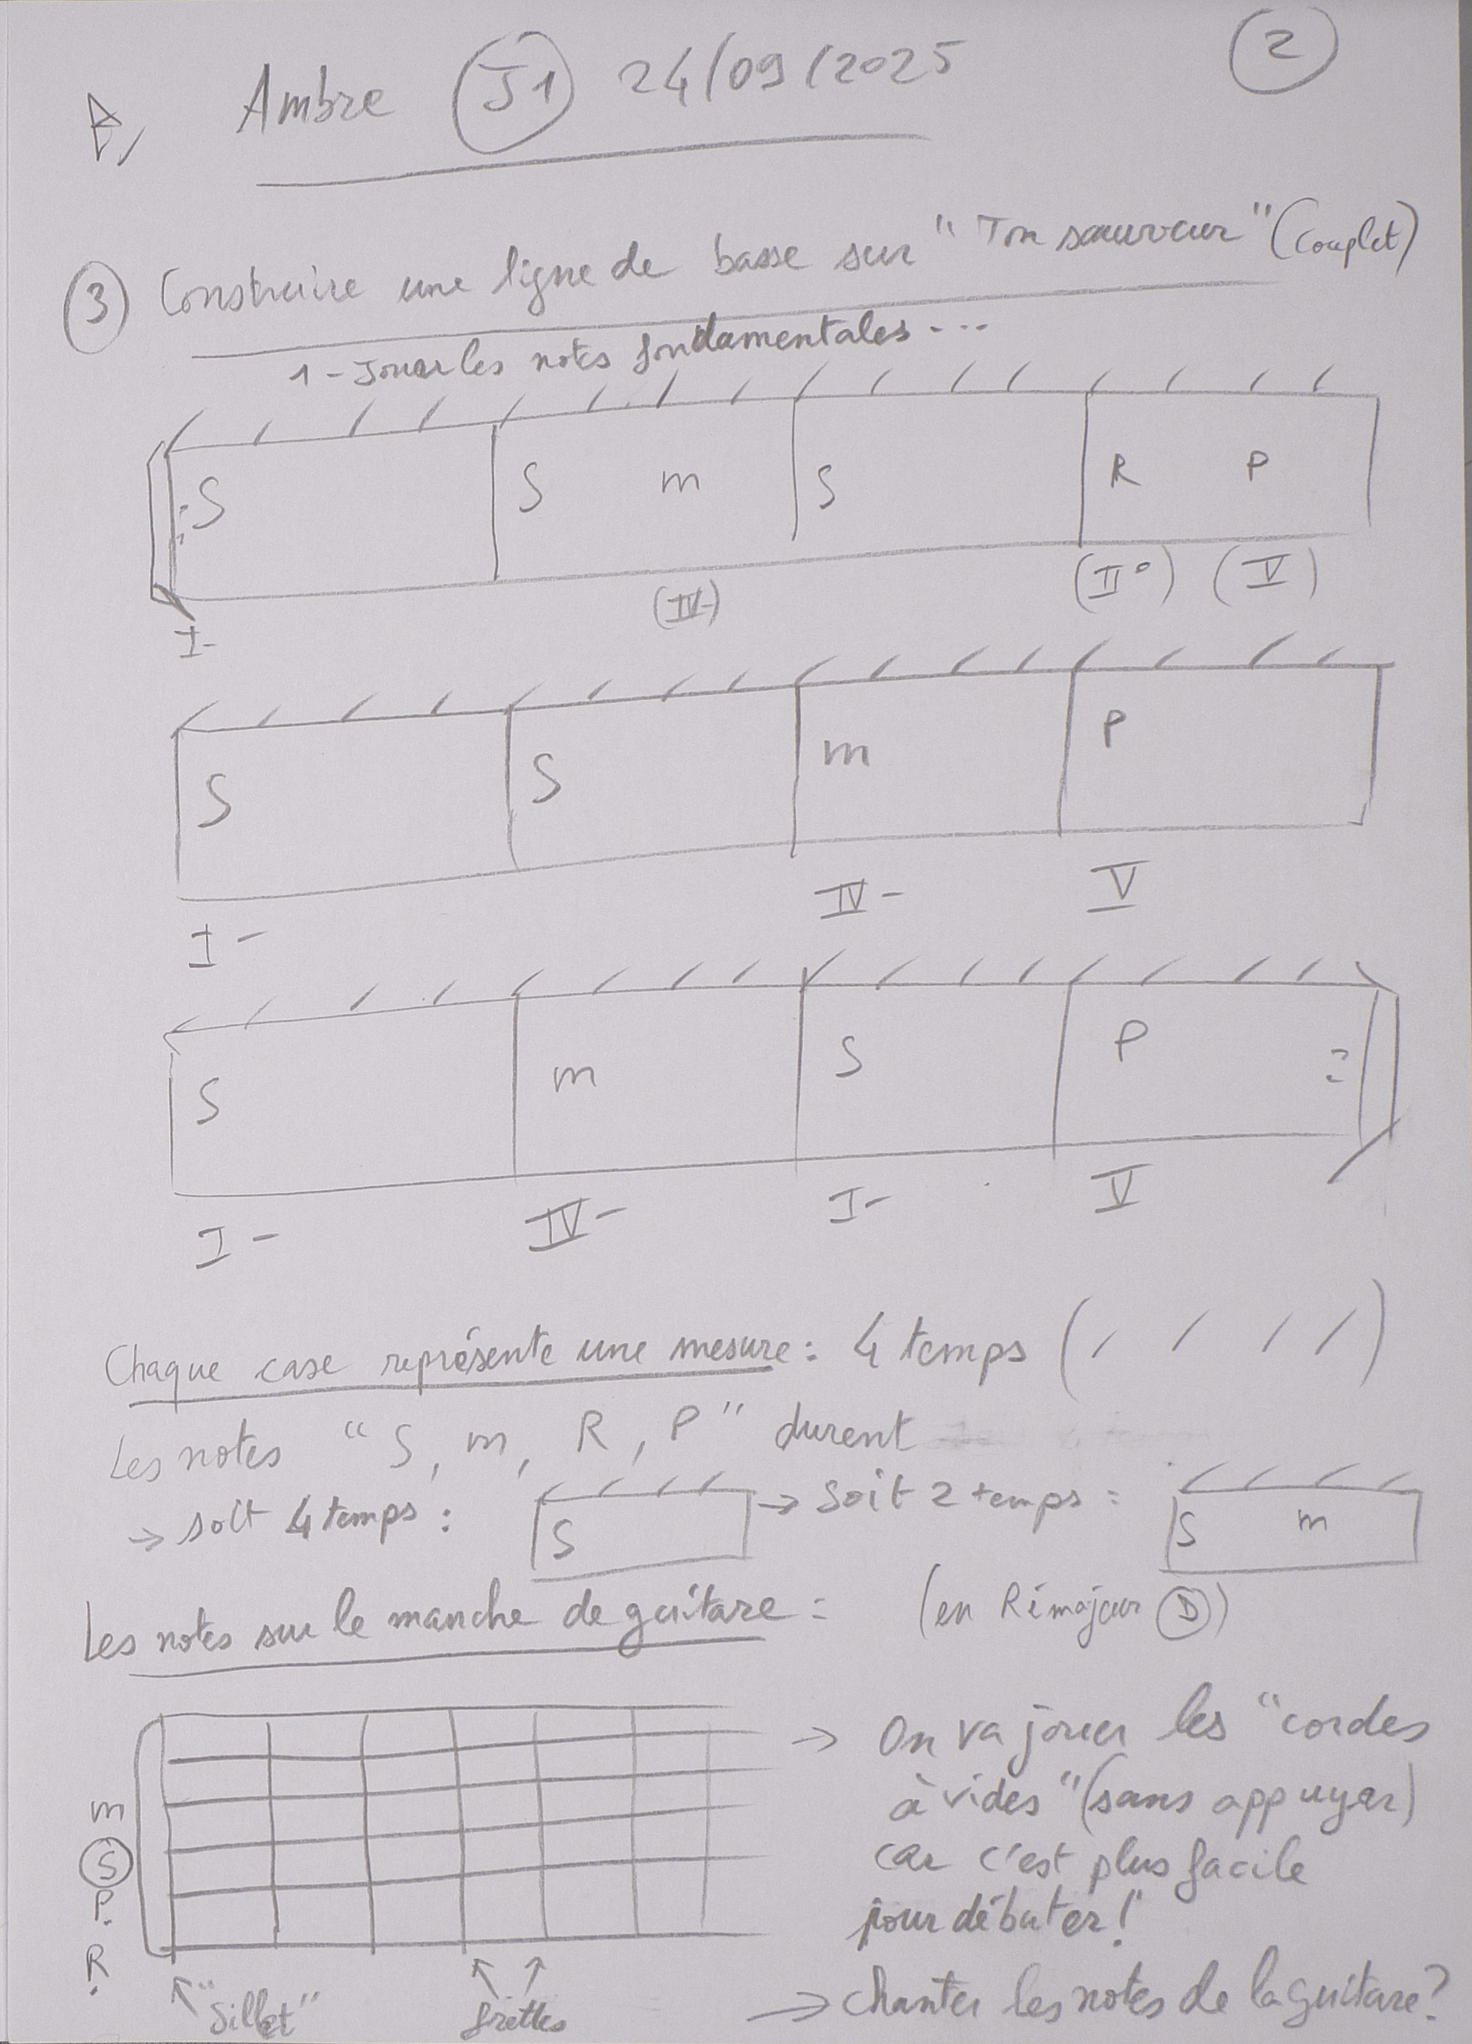 Ambre J1 24/09/2025 2
3 Construire une ligne de basse sur "Ton sauveur" (couplet)
1 - Jouer les notes fondamentales ...
S S m S R P
I- (IV-) (II°) (V)
S S m P
I- IV- V
S m S P
I- IV- I- V
Chaque case représente une mesure : 4 temps ( / / / / )
Les notes "S, m, R, P" durent
→ soit 4 temps : S → Soit 2 temps : S m
Les notes sur le manche de guitare : (en Ré majeur D)
→ On va jouer les "cordes
à vides" (sans appuyer)
car c'est plus facile
pour débuter !
m
S
P.
R.
"Sillet" frettes
→ Chanter les notes de la guitare ?